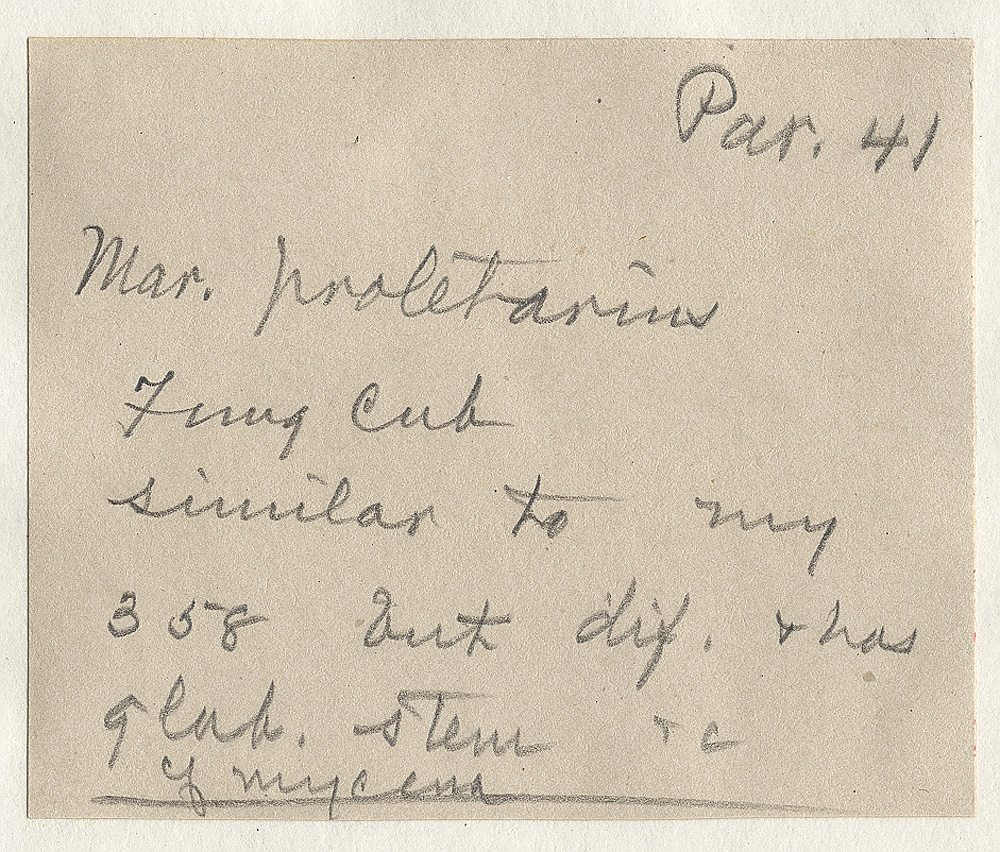 Par. 41
Mar. proletarius
Fung Cub
similar to my
358 but dif. & has
glab. stem & c